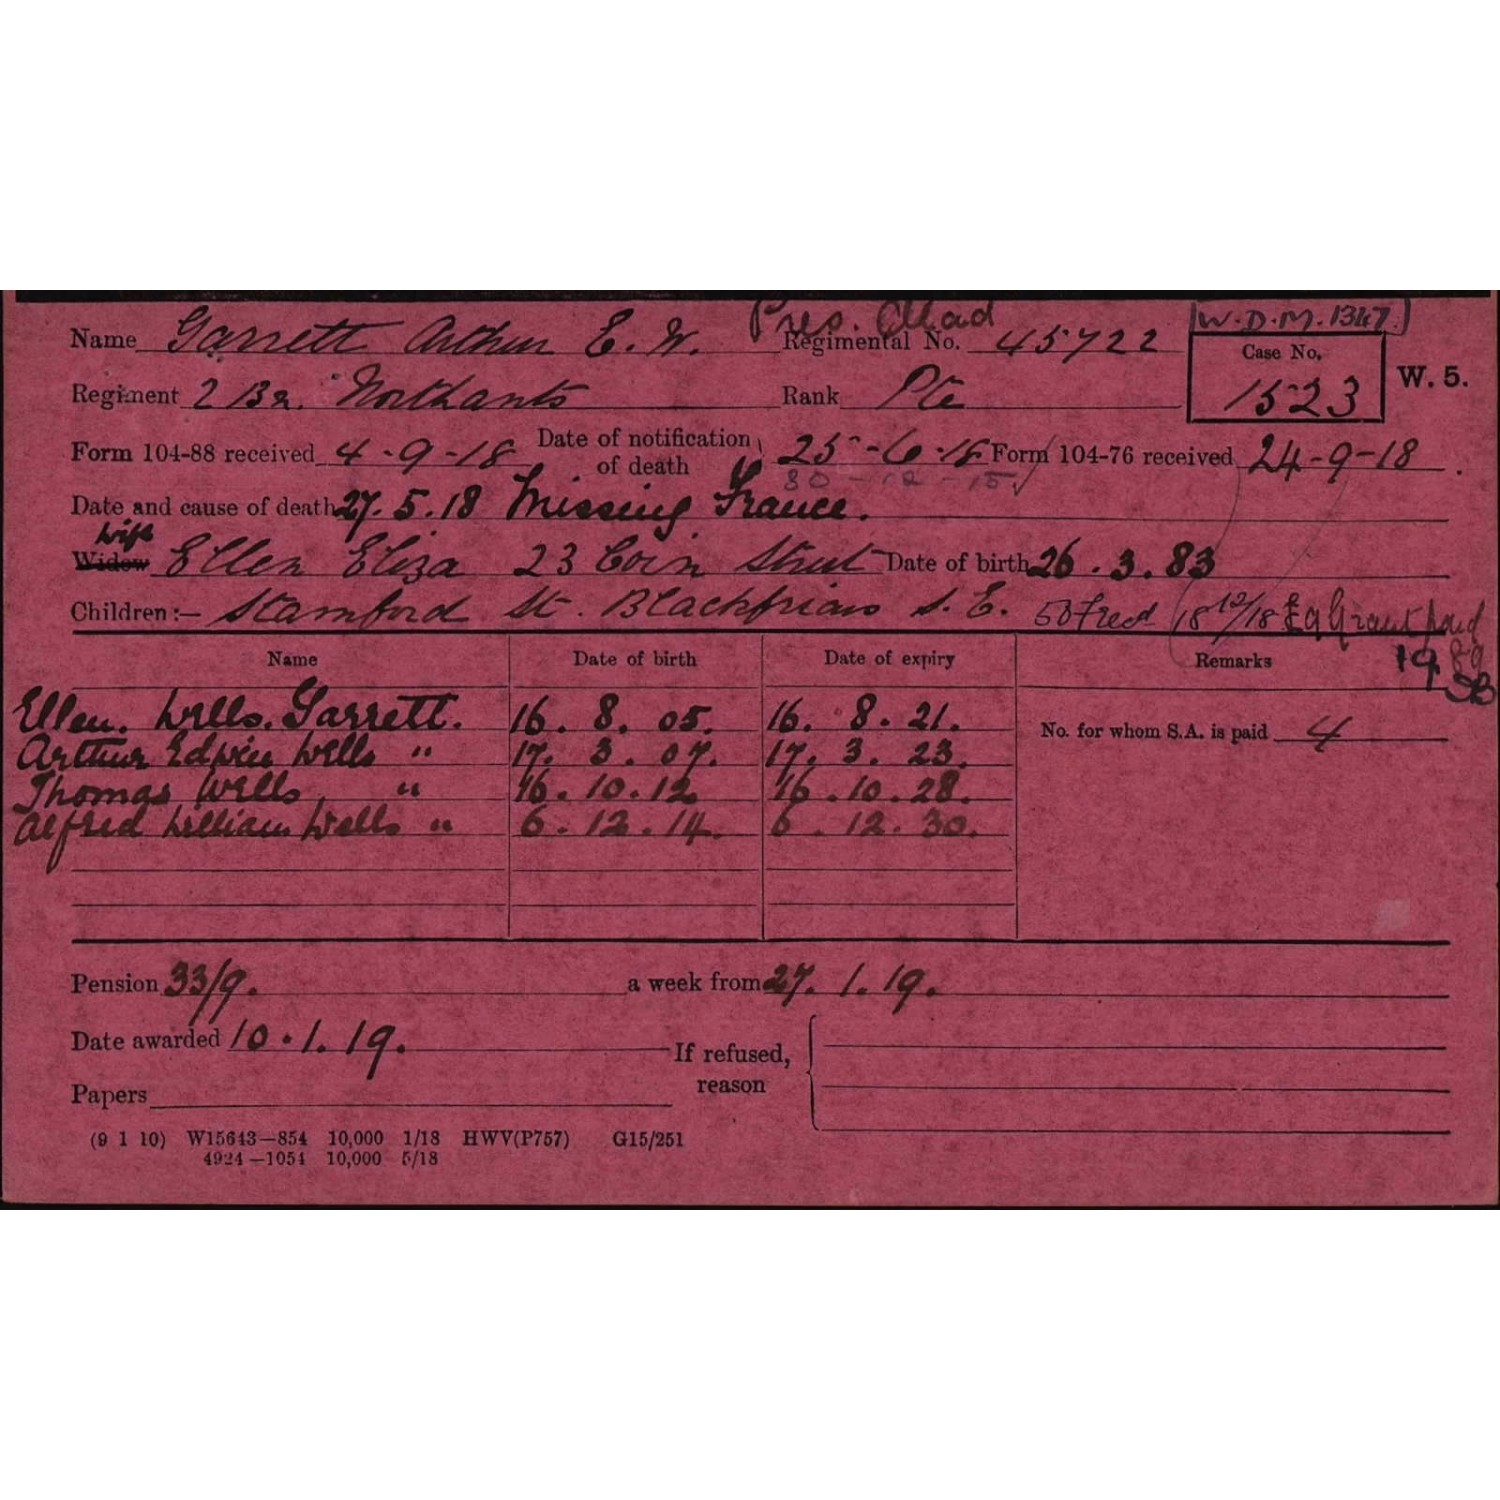 Pres. Dead
W.D.M. 1347
Name Garrett Arthur E. W. Regimental No. 45722
Case No. 1523 W. 5.
Regiment 2 Bn. Northants Rank Pte
Form 104-88 received 4-9-18 Date of notification of death 25-6-18 Form 104-76 received 24-9-18
30-12-15
Date and cause of death 27.5.18 Missing France.
Wife
Widow Ellen Eliza 23 Coin Street Date of birth 26.3.83
Children:— Stamford St. Blackfriars S.E. 18 12/18 £9 Grant paid
19
Name Date of birth Date of expiry Remarks
Ellen. Wells. Garrett. 16. 8. 05. 16. 8. 21. No. for whom S.A. is paid 4
Arthur Edwin Wells " 17. 3. 07. 17. 3. 23.
Thomas Wells " 16. 10. 12 16. 10. 28.
Alfred William Wells " 6. 12. 14. 6. 12. 30.
Pension 33/9. a week from 27. 1. 19.
Date awarded 10.1.19. If refused, reason
Papers
(9 1 10) W15643—854 10,000 1/18 HWV(P757) G15/251
4924—1054 10,000 5/18